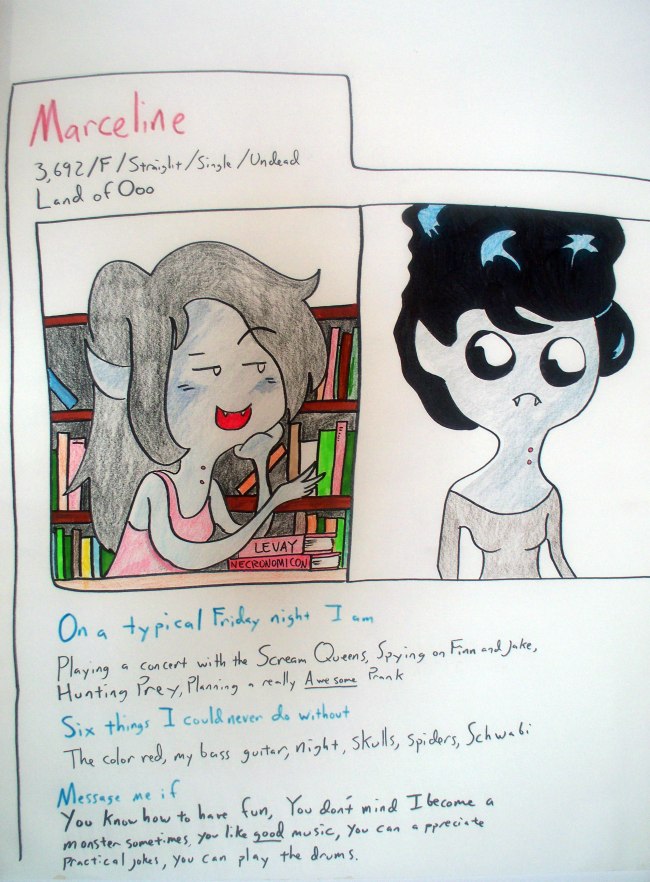 Marceline
3,692/F/Straight/Single/Undead
Land of Ooo
LEVAY
NECRONOMICON
On a typical Friday night I am
Playing a concert with the Scream Queens, Spying on Finn and Jake,
Hunting Prey, Planning a really Awesome Prank
Six things I could never do without
The color red, my bass guitar, night, skulls, spiders, Schwabl
Message me if
You know how to have fun, You don't mind I become a
monster sometimes, you like good music, you can appreciate
practical jokes, you can play the drums.